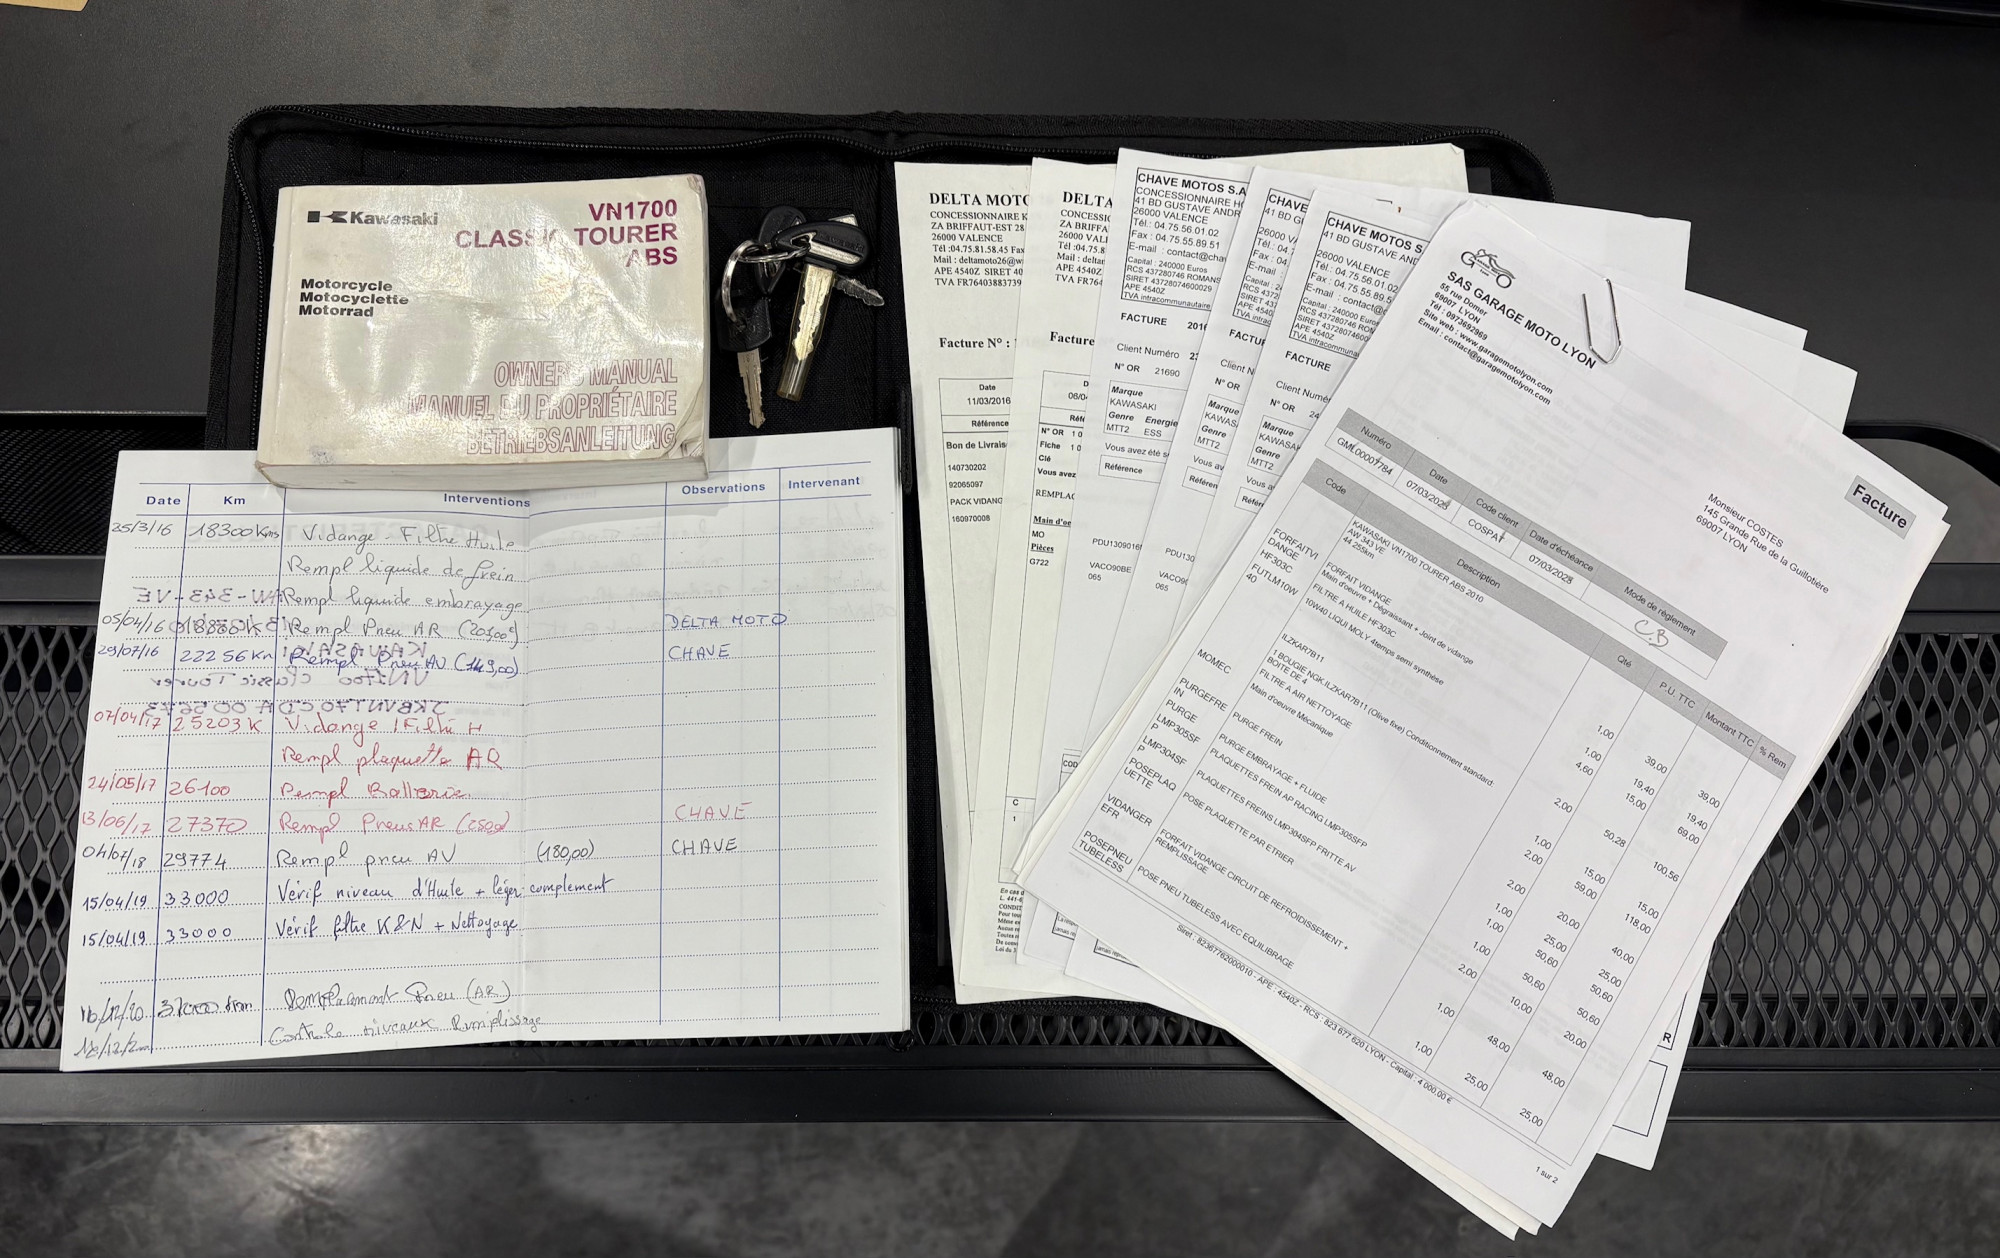 Kawasaki
VN1700
CLASSIC TOURER
ABS
Motorcycle
Motocyclette
Motorrad
OWNER'S MANUAL
MANUEL DU PROPRIÉTAIRE
BETRIEBSANLEITUNG
Date Km Interventions Observations Intervenant
25/3/16 18300 Kms Vidange - Filtre Huile
Rempl liquide de frein
Rempl liquide embrayage
05/04/16 Rempl Pneu AR DELTA MOTO
29/07/16 22256 Km Rempl Pneu AV CHAVE
07/04/17 25203 K Vidange / Filtre H
Rempl plaquette AR
24/05/17 26100 Rempl Batterie
13/06/17 27370 Rempl Pneus AR CHAVE
04/07/18 29774 Rempl pneu AV (180,00) CHAVE
15/04/19 33000 Vérif niveau d'Huile + léger complement
15/04/19 33000 Vérif filtre K&N + Nettoyage
16/12/20 Remplacement Pneu (AR)
Controle niveaux Remplissage
DELTA MOTO
CONCESSIONNAIRE K
ZA BRIFFAUT-EST 28
26000 VALENCE
Tél :04.75.81.58.45 Fax
Mail : deltamoto26@w
APE 4540Z SIRET 40
TVA FR76403883739
Facture N° :
Date
11/03/2016
Référence
Bon de Livrais
140730202
92065097
PACK VIDANG
160970008
DELTA
CONCESSI
ZA BRIFFA
26000 VALI
Tél :04.75.8
Mail : deltam
APE 4540Z
TVA FR764
Facture
N° OR
Fiche
Clé
Vous avez
REMPLAC
Main d'oe
MO
Pièces
G722
CHAVE MOTOS S.A
CONCESSIONNAIRE HO
41 BD GUSTAVE ANDR
26000 VALENCE
Tél. : 04.75.56.01.02
Fax : 04.75.55.89.51
E-mail : contact@cha
Capital : 240000 Euros
RCS 437280746 ROMANS
SIRET 43728074600029
APE 4540Z
TVA intracommunautaire
FACTURE 2016
Client Numéro
N° OR 21690
Marque
KAWASAKI
Genre Energie
MTT2 ESS
Vous avez été s
Référence
PDU1309016
VACO90BE
065
CHAVE
41 BD G
26000 VA
Tél.: 04.7
Fax : 04.
E-mail :
Capital :
RCS 4372
SIRET 43
APE 4540
TVA intra
FACTU
Client N
N° OR
Marque
KAWAS
Genre
MTT2
Vous av
Référen
PDU130
VACO9
065
CHAVE MOTOS S
41 BD GUSTAVE AND
26000 VALENCE
Tél. : 04.75.56.01.02
Fax : 04.75.55.89.5
E-mail : contact@c
Capital : 240000 Euros
RCS 437280746 ROM
SIRET 43728074600
APE 4540Z
TVA intracommuna
FACTURE
Client Numé
N° OR 24
Marque
KAWASAK
Genre
MTT2
Vous a
Référe
SAS GARAGE MOTO LYON
55 rue Domer
69007 LYON
Tél : 0973692969
Site web : www.garagemotolyon.com
Email : contact@garagemotolyon.com
Facture
Monsieur COSTES
145 Grande Rue de la Guillotière
69007 LYON
Numéro Date Code client Date d'échéance Mode de règlement
GML00007784 07/03/2025 COSPAT 07/03/2025 CB
Code Description Qté P.U. TTC Montant TTC % Rem
KAWASAKI VN1700 TOURER ABS 2010
AW 343 VE
44 255km
FORFAITVI FORFAIT VIDANGE 1,00 39,00 39,00
DANGE Main d'oeuvre + Dégraissant + Joint de vidange
HF303C FILTRE A HUILE HF303C 1,00 19,40 19,40
FUTLM10W 10W40 LIQUI MOLY 4temps semi synthèse 4,60 15,00 69,00
40
ILZKAR7B11
1 BOUGIE NGK ILZKAR7B11 (Olive fixe) Conditionnement standard 2,00 50,28 100,56
BOITE DE 4
FILTRE A AIR NETTOYAGE 1,00 15,00 15,00
MOMEC Main d'oeuvre Mécanique 2,00 59,00 118,00
PURGEFRE PURGE FREIN 2,00 20,00 40,00
IN
PURGE PURGE EMBRAYAGE + FLUIDE 1,00 25,00 25,00
LMP305SF PLAQUETTES FREIN AP RACING LMP305SFP 1,00 50,60 50,60
P
LMP304SF PLAQUETTES FREINS LMP304SFP FRITTE AV 1,00 50,60 50,60
P
POSEPLAQ POSE PLAQUETTE PAR ETRIER 2,00 10,00 20,00
UETTE
VIDANGER FORFAIT VIDANGE CIRCUIT DE REFROIDISSEMENT + 1,00 48,00 48,00
EFR REMPLISSAGE
POSEPNEU POSE PNEU TUBELESS AVEC EQUILIBRAGE 1,00 25,00 25,00
TUBELESS
Siret : 82367762000010 - APE : 4540Z - RCS : 823 677 620 LYON - Capital : 4 000.00 €
1 sur 2